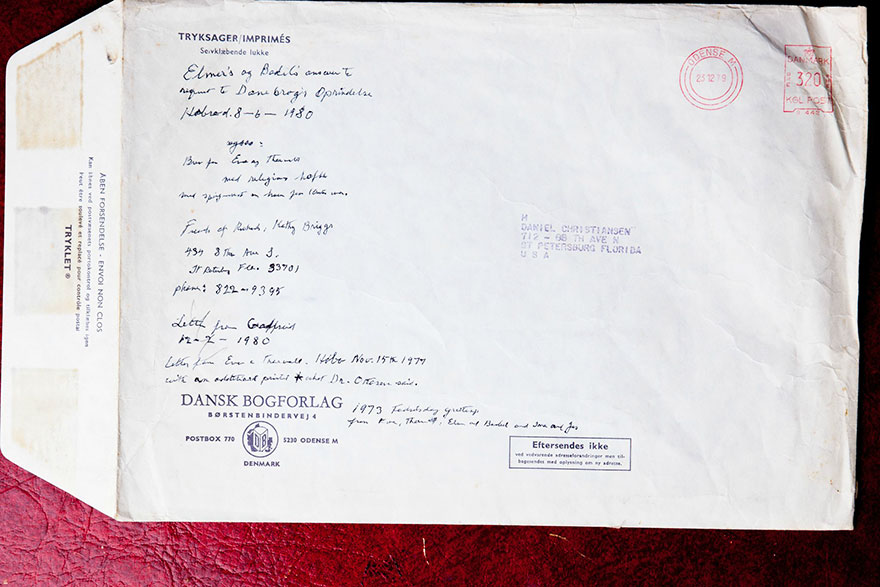 TRYKSAGER/IMPRIMÉS
Selvklæbende lukke
Elmer's og Bodil's answer to
request to Danebrog's Oprindelse
Hobro d. 8-6-1980
Brev fra Eva og Thorvald
med religiøs
med
Friends of Richard, Kathy Briggs
434 8 The Ave S,
St Petersburg Fla. 33701
phone: 822-9395
Letter from
12-2-1980
Letter from Eva & Thorvald. Hobro Nov. 15th 1977
with an additional printed * what Dr. said.
1973 Fødselsdag Greetings
from Eva, Thorvald, Elmer and Bodil and and
DANSK BOGFORLAG
BØRSTENBINDERVEJ 4
POSTBOX 770
5230 ODENSE M
DENMARK
ODENSE M
23 12 79
DANMARK
320
KGL POST
H
DANIEL CHRISTIANSEN
ST PETERSBURG FLORIDA
U S A
Eftersendes ikke
ved vedvarende adresseforandringer men til-
bagesendes med oplysning om ny adresse.
ÅBEN FORSENDELSE - ENVOI NON CLOS
Kan åbnes ved postvæsenets portokontrol og tilklæbes igen
Peut être soulevé et replacé pour contrôle postal
TRYKLET ®